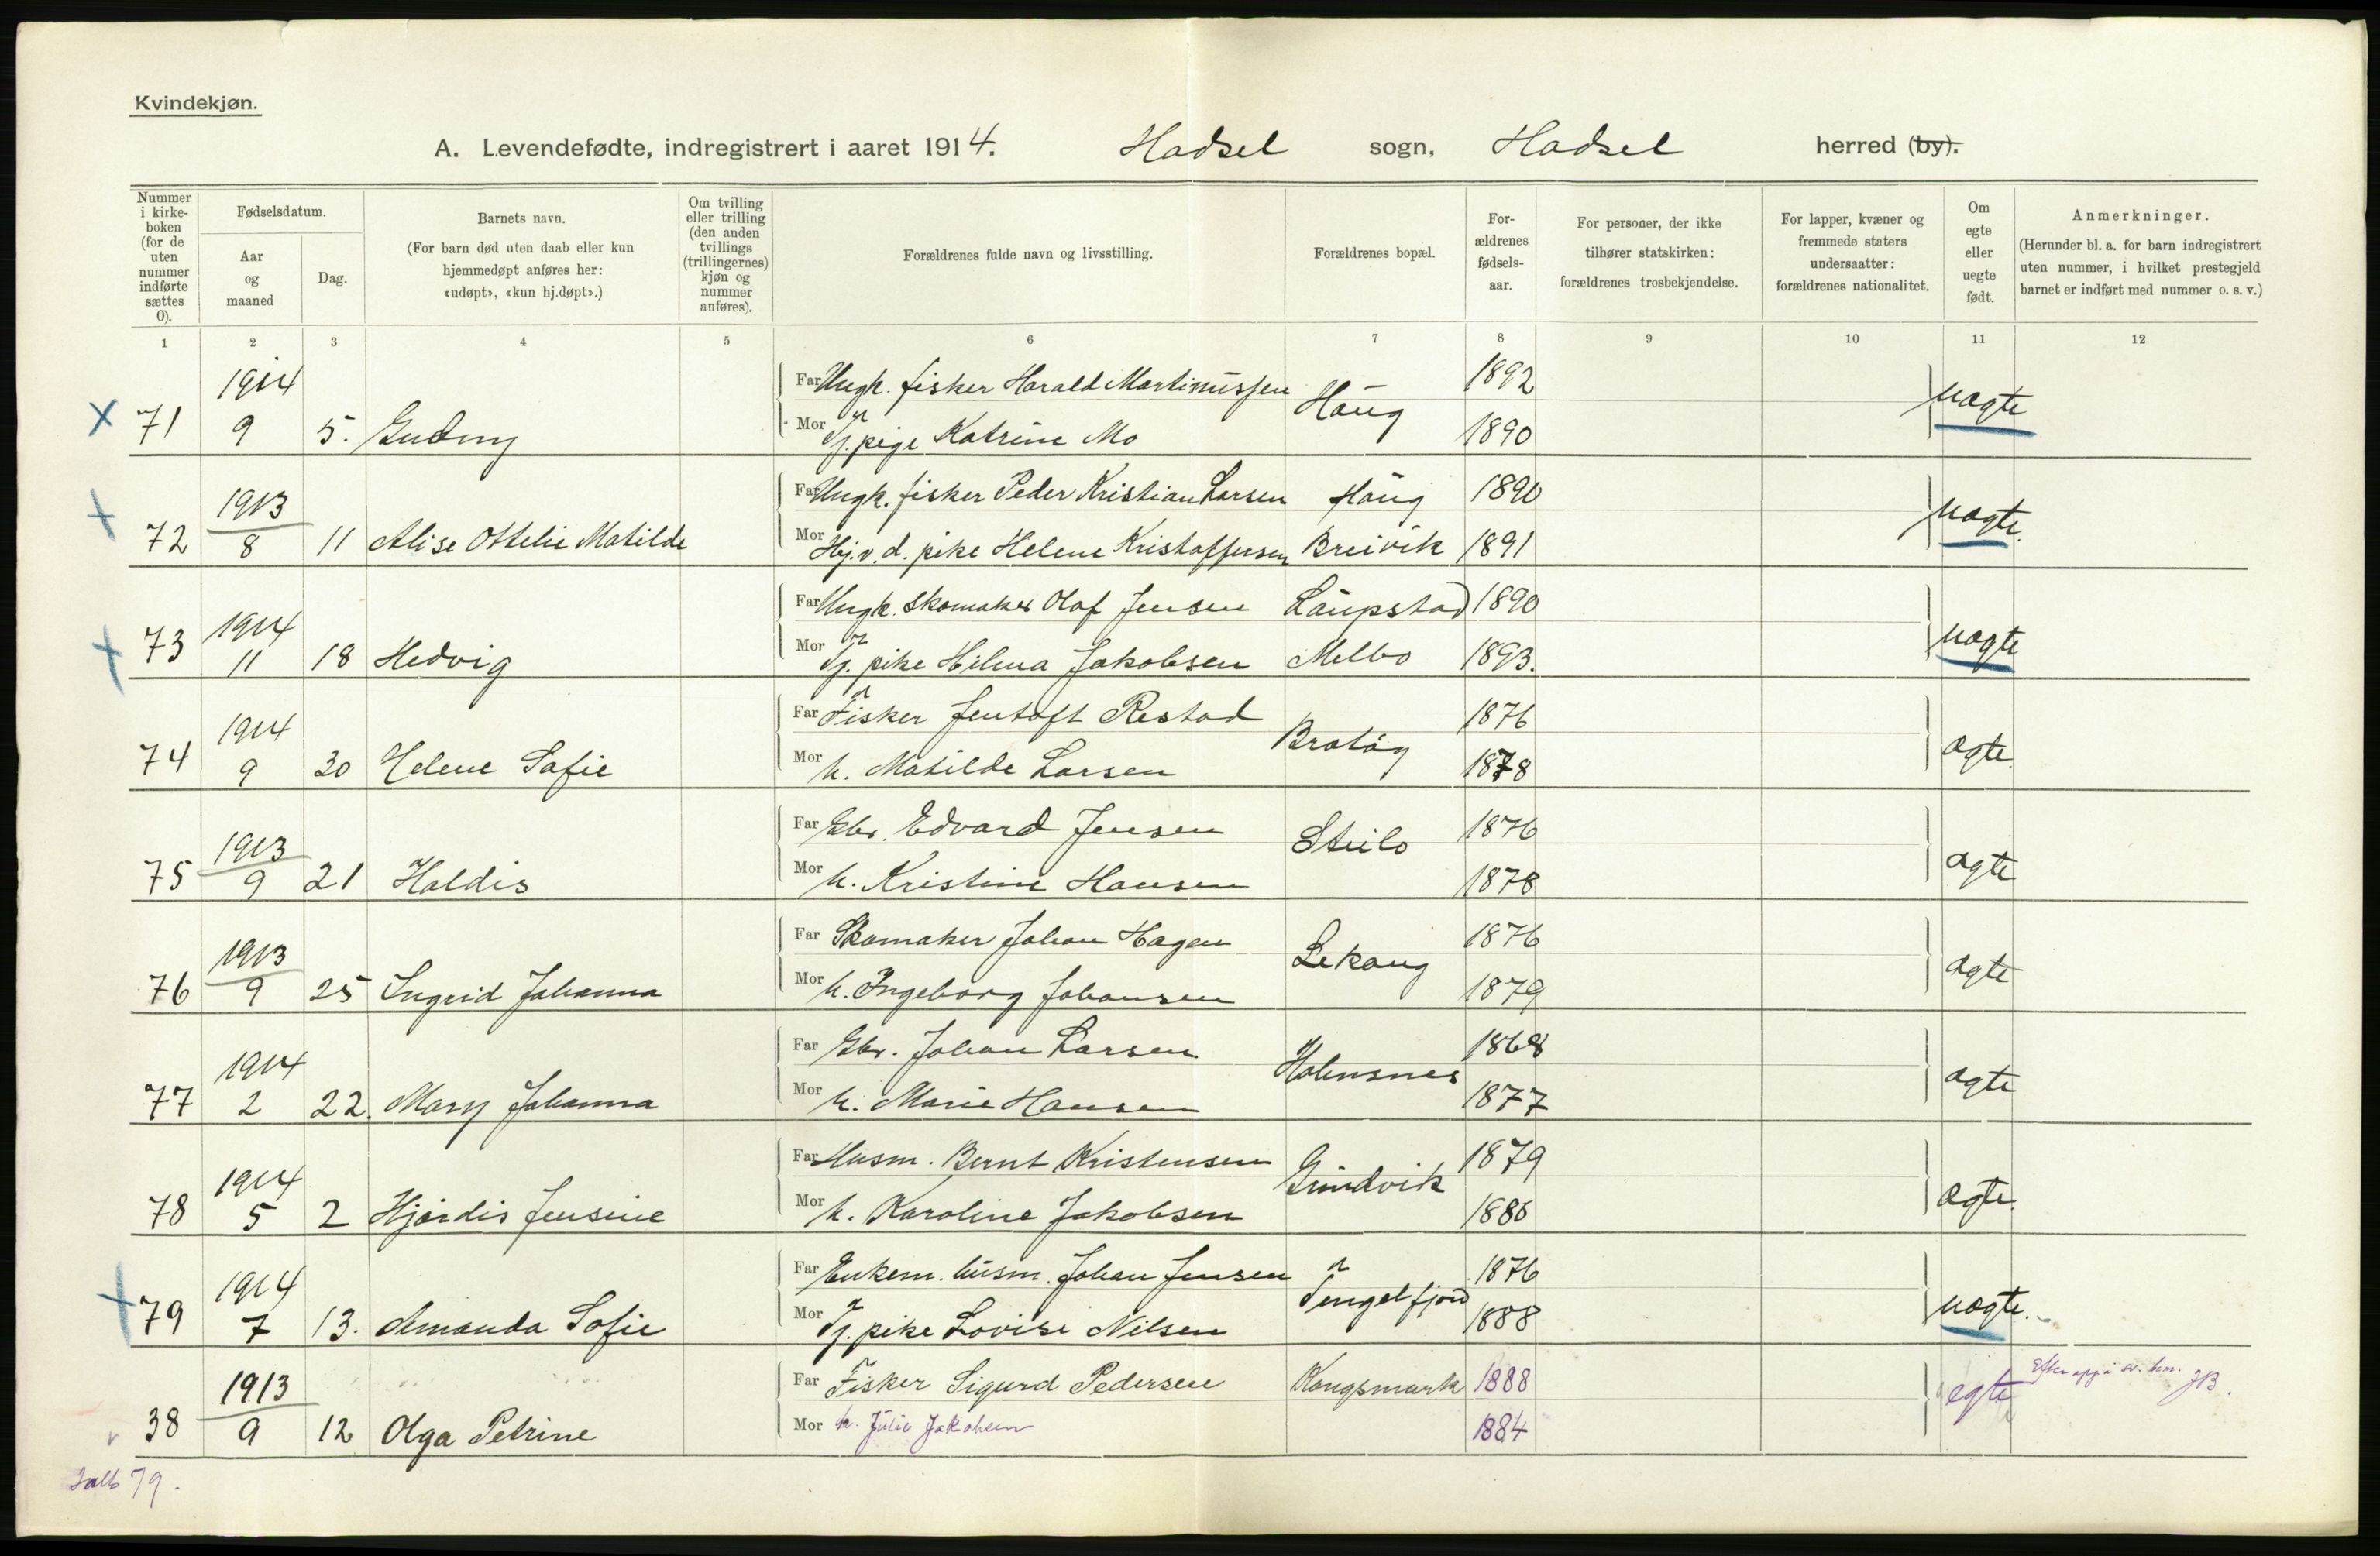 Kvindekjøn.
A. Levendefødte, indregistrert i aaret 1914. Hadsel sogn, Hadsel herred (by).
Nummer i kirkeboken (for de uten nummer indførte sættes 0).
Fødselsdatum.
Aar og maaned
Dag.
Barnets navn.
(For barn død uten daab eller kun hjemmedøpt anføres her: «udøpt», «kun hj.døpt».)
Om tvilling eller trilling (den anden tvillings (trillingernes) kjøn og nummer anføres).
Forældrenes fulde navn og livsstilling.
Forældrenes bopæl.
Forældrenes fødselsaar.
For personer, der ikke tilhører statskirken: forældrenes trosbekjendelse.
For lapper, kvæner og fremmede staters undersaatter: forældrenes nationalitet.
Om egte eller uegte født.
Anmerkninger.
(Herunder bl. a. for barn indregistrert uten nummer, i hvilket prestegjeld barnet er indført med nummer o. s. v.)
1 2 3 4 5 6 7 8 9 10 11 12
1914 Far Ungk. fisker Harald Martinussen Haug 1892 uægte
x 71 9 5. Gudny Mor Tj. pige Katrine Mo 1890
1913 Far Ungk. fisker Peder Kristian Larsen Haug 1890 uægte.
+ 72 8 11 Alise Ottelie Matilde Mor Hj.v.d. pike Helene Kristoffersen Breivik 1891
1914 Far Ungk. skomaker Olaf Jensen Laupstad 1890 uægte
+ 73 11 18 Hedvig Mor Tj. pike Hilma Jakobsen Melbo 1893.
1914 Far Fisker Jentoft Restad 1876 ægte.
74 9 30 Helene Sofie Mor h. Matilde Larsen 1878
1913 Far Gbr. Edvard Jensen Steilo 1876 ægte
75 9 21 Haldis Mor h. Kristine Hansen 1878
1913 Far Skomaker Johan Hagen Lekang 1876 ægte
76 9 25 Ingrid Johanna Mor h. Ingeborg Johansen 1879
1914 Far Gbr. Johan Larsen Holmsnes 1868 ægte
77 2 22. Mary Johanna Mor h. Marie Hansen 1877
1914 Far Husm. Bernt Kristensen 1879 ægte.
78 5 2 Hjørdis Jensine Mor h. Karoline Jakobsen 1886
1914 Far Enkem. husm. Johan Jensen Tengelfjord 1876 uægte.
+ 79 7 13. Amanda Sofie Mor Tj. pike Lovise Nilsen 1888
1913 Far Fisker Sigurd Pedersen Kongsmark 1888 egte
38 9 12 Olga Petrine Mor h. Julie Jakobsen 1884
79.